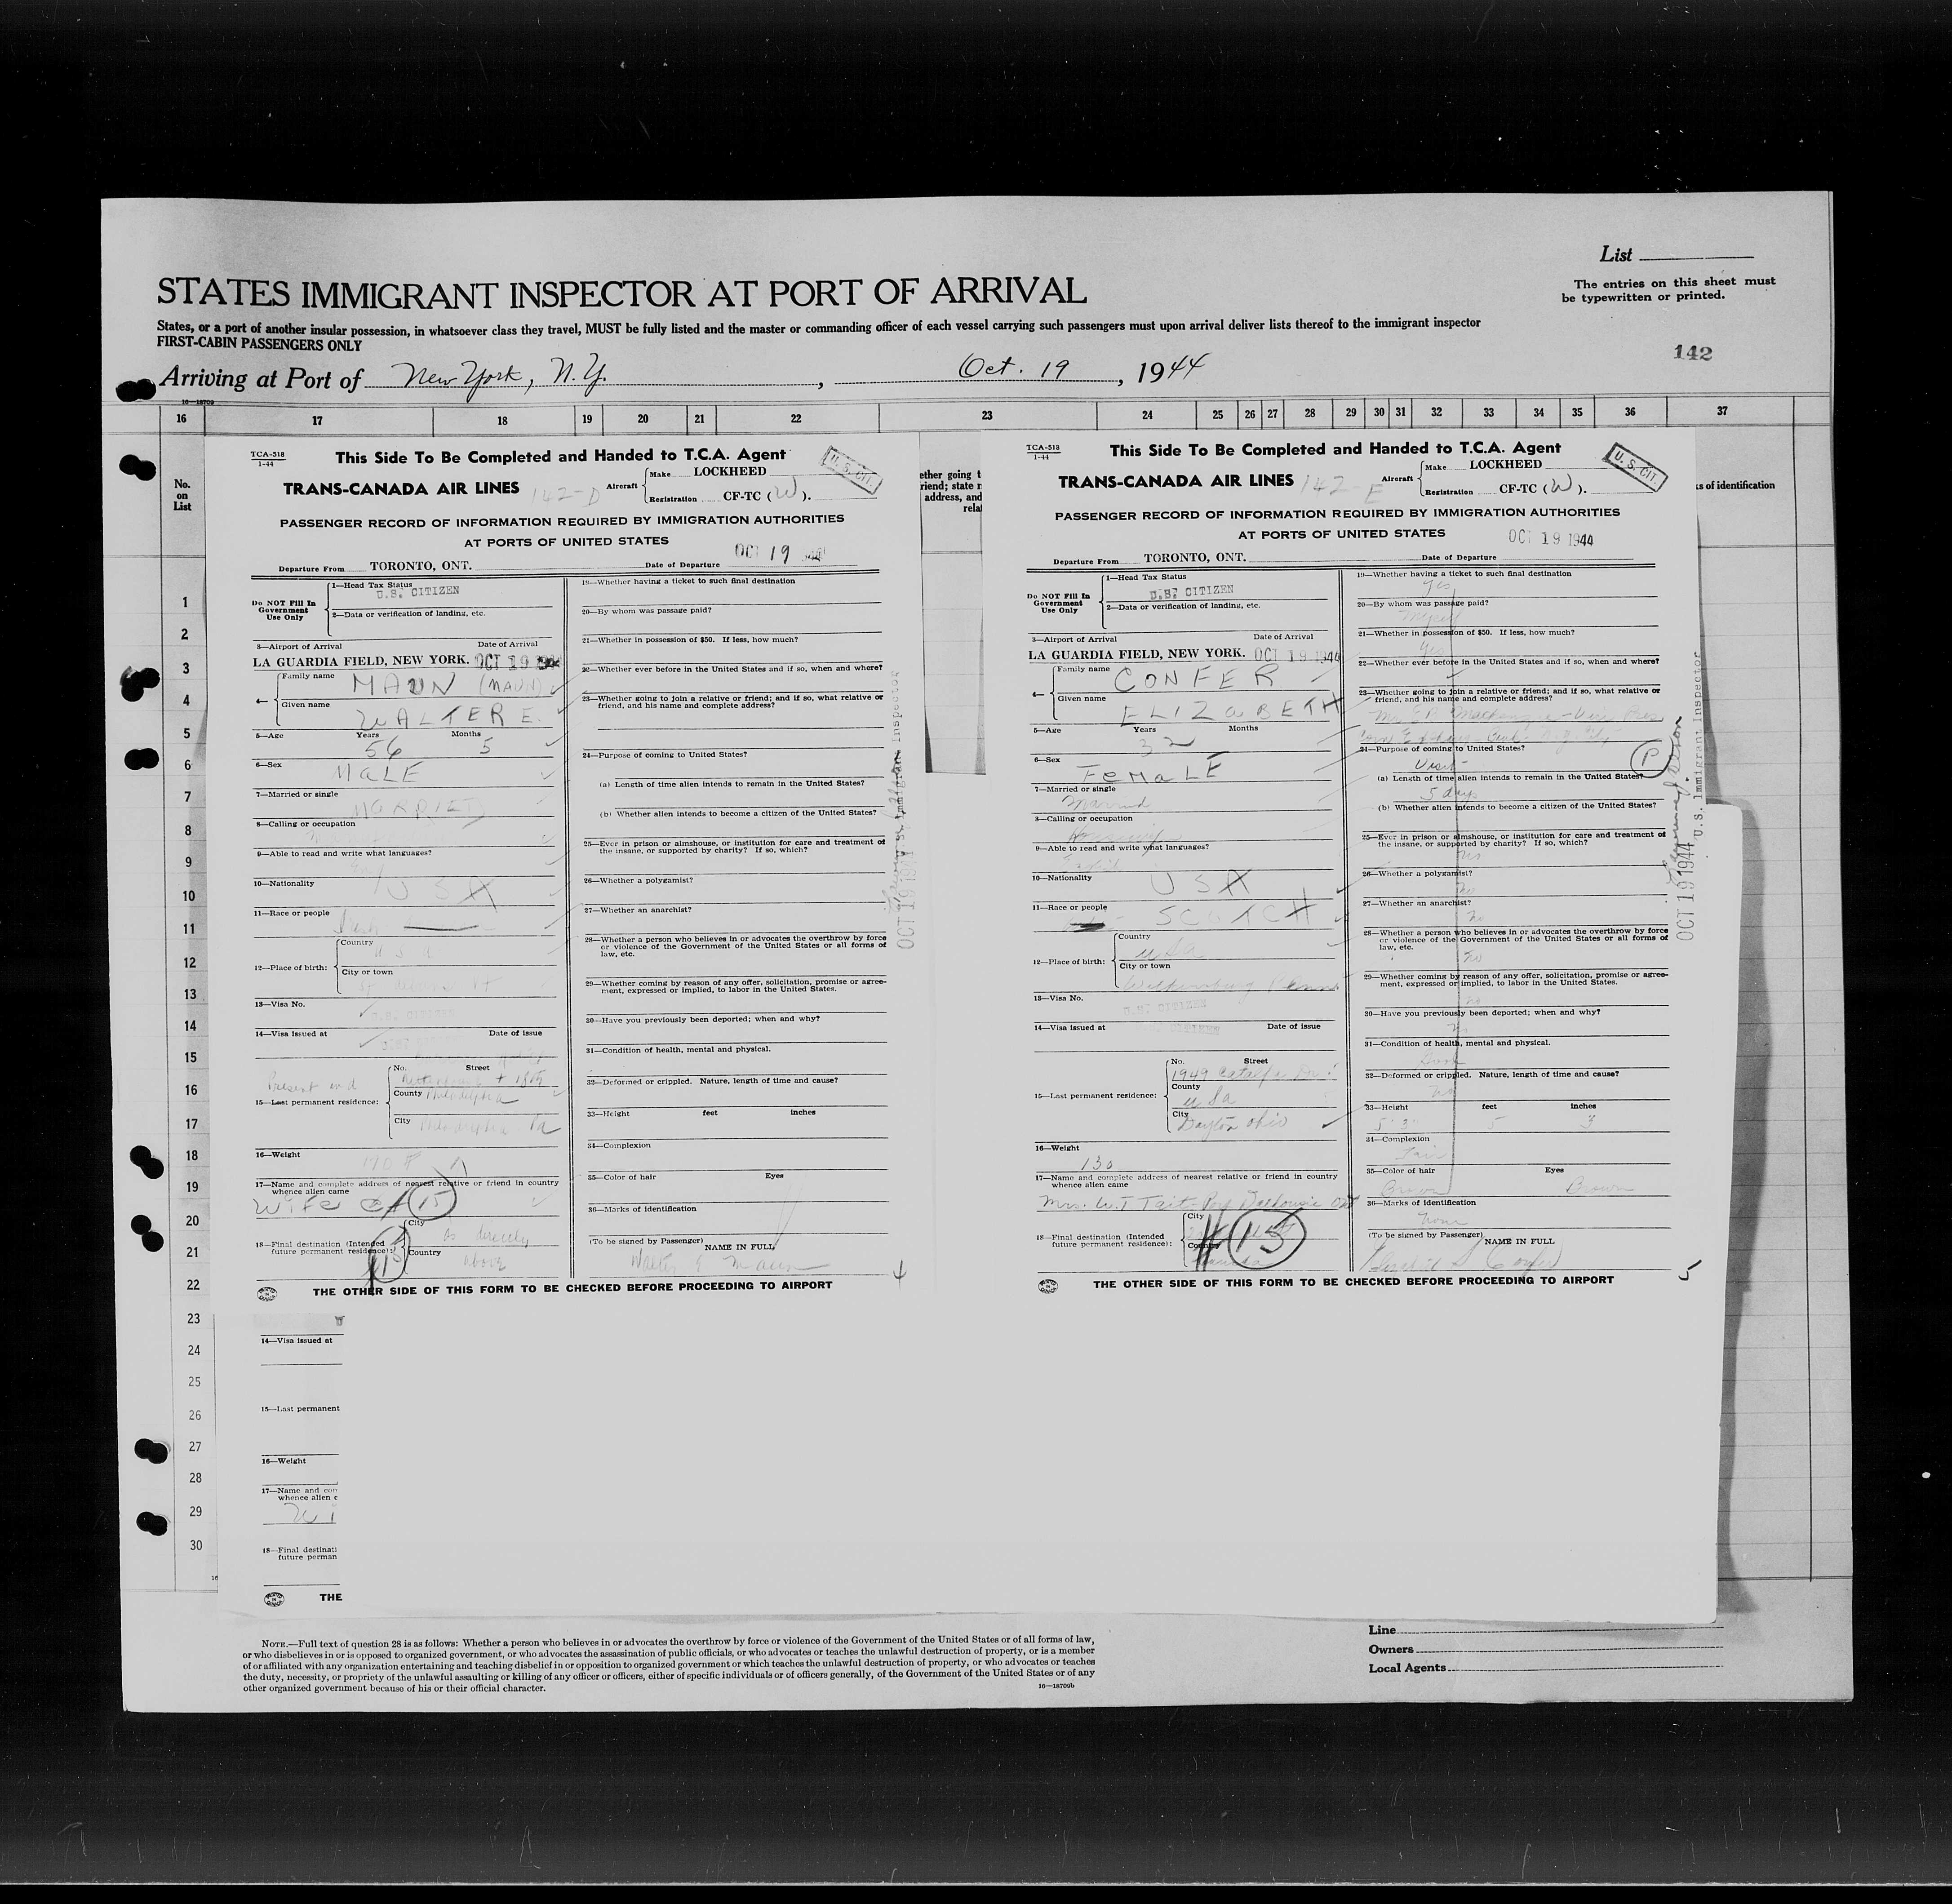 List
STATES IMMIGRANT INSPECTOR AT PORT OF ARRIVAL
The entries on this sheet must
be typewritten or printed.
States, or a port of another insular possession, in whatsoever class they travel, MUST be fully listed and the master or commanding officer of each vessel carrying such passengers must upon arrival deliver lists thereof to the immigrant inspector
FIRST-CABIN PASSENGERS ONLY
142
Arriving at Port of New York, N.Y., Oct. 19, 1944
16 17 18 19 20 21 22 23 24 25 26 27 28 29 30 31 32 33 34 35 36 37
No.
on
List
1
2
3
4
5
6
7
8
9
10
11
12
13
14
15
16
17
18
19
20
21
22
23
24
25
26
27
28
29
30
TCA-518
1-44
This Side To Be Completed and Handed to T.C.A. Agent
U. S. CIT.
TRANS-CANADA AIR LINES 142-D
Aircraft
Make LOCKHEED
Registration CF-TC (W).
PASSENGER RECORD OF INFORMATION REQUIRED BY IMMIGRATION AUTHORITIES
AT PORTS OF UNITED STATES
OCT 19 1944
Departure From TORONTO, ONT. Date of Departure
Do NOT Fill In
Government
Use Only
1—Head Tax Status
U.S. CITIZEN
2—Data or verification of landing, etc.
3—Airport of Arrival Date of Arrival
LA GUARDIA FIELD, NEW YORK. OCT 19 1944
4— Family name
MAUN (MAUN)
Given name
WALTER E.
5—Age Years Months
56 5
6—Sex
MALE
7—Married or single
MARRIED
8—Calling or occupation
9—Able to read and write what languages?
10—Nationality
USA
11—Race or people
12—Place of birth:
Country
USA
City or town
13—Visa No.
U.S. CITIZEN
14—Visa issued at Date of issue
Present and
15—Last permanent residence:
No. Street
County Philadelphia
City Philadelphia Pa
16—Weight
170
17—Name and complete address of nearest relative or friend in country
whence alien came
WIFE 15
18—Final destination (Intended
future permanent residence):
City
as directly
Country
above
15
19—Whether having a ticket to such final destination
20—By whom was passage paid?
21—Whether in possession of $50. If less, how much?
22—Whether ever before in the United States and if so, when and where?
23—Whether going to join a relative or friend; and if so, what relative or
friend, and his name and complete address?
24—Purpose of coming to United States?
(a) Length of time alien intends to remain in the United States?
(b) Whether alien intends to become a citizen of the United States?
25—Ever in prison or almshouse, or institution for care and treatment of
the insane, or supported by charity? If so, which?
26—Whether a polygamist?
27—Whether an anarchist?
28—Whether a person who believes in or advocates the overthrow by force
or violence of the Government of the United States or all forms of
law, etc.
29—Whether coming by reason of any offer, solicitation, promise or agree-
ment, expressed or implied, to labor in the United States.
30—Have you previously been deported; when and why?
31—Condition of health, mental and physical.
32—Deformed or crippled. Nature, length of time and cause?
33—Height feet inches
34—Complexion
35—Color of hair Eyes
36—Marks of identification
(To be signed by Passenger) NAME IN FULL
Walter E Maun
4
THE OTHER SIDE OF THIS FORM TO BE CHECKED BEFORE PROCEEDING TO AIRPORT
OCT 19 1944
Immigrant Inspector
ether going t
riend; state r
address, and
rela
TCA-518
1-44
This Side To Be Completed and Handed to T.C.A. Agent
U. S. CIT.
TRANS-CANADA AIR LINES 142-E
Aircraft
Make LOCKHEED
Registration CF-TC (W).
ks of identification
PASSENGER RECORD OF INFORMATION REQUIRED BY IMMIGRATION AUTHORITIES
AT PORTS OF UNITED STATES
OCT 19 1944
Departure From TORONTO, ONT. Date of Departure
Do NOT Fill In
Government
Use Only
1—Head Tax Status
U.S. CITIZEN
2—Data or verification of landing, etc.
3—Airport of Arrival Date of Arrival
LA GUARDIA FIELD, NEW YORK. OCT 19 1944
4— Family name
CONFER
Given name
ELIZABETH
5—Age Years Months
32
6—Sex
FEMALE
7—Married or single
Married
8—Calling or occupation
Housewife
9—Able to read and write what languages?
English
10—Nationality
USA
11—Race or people
SCOTCH
12—Place of birth:
Country
USA
City or town
Wilkinsburg Penna
13—Visa No.
U.S. CITIZEN
14—Visa issued at Date of issue
U.S. CITIZEN
15—Last permanent residence:
No. Street
1949 Catalpa Dr.
County
USA
City
Dayton Ohio
16—Weight
130
17—Name and complete address of nearest relative or friend in country
whence alien came
Mrs. W.T Tait Port Dalhousie Ont
18—Final destination (Intended
future permanent residence):
City
Country
15
19—Whether having a ticket to such final destination
Yes
20—By whom was passage paid?
Myself
21—Whether in possession of $50. If less, how much?
Yes
22—Whether ever before in the United States and if so, when and where?
23—Whether going to join a relative or friend; and if so, what relative or
friend, and his name and complete address?
24—Purpose of coming to United States?
Visit
P
(a) Length of time alien intends to remain in the United States?
5 days
(b) Whether alien intends to become a citizen of the United States?
25—Ever in prison or almshouse, or institution for care and treatment of
the insane, or supported by charity? If so, which?
no
26—Whether a polygamist?
no
27—Whether an anarchist?
no
28—Whether a person who believes in or advocates the overthrow by force
or violence of the Government of the United States or all forms of
law, etc.
no
29—Whether coming by reason of any offer, solicitation, promise or agree-
ment, expressed or implied, to labor in the United States.
no
30—Have you previously been deported; when and why?
no
31—Condition of health, mental and physical.
Good
32—Deformed or crippled. Nature, length of time and cause?
no
33—Height feet inches
5'3" 5 3
34—Complexion
Fair
35—Color of hair Eyes
Brown Brown
36—Marks of identification
none
(To be signed by Passenger) NAME IN FULL
Elizabeth S Confer
5
THE OTHER SIDE OF THIS FORM TO BE CHECKED BEFORE PROCEEDING TO AIRPORT
OCT 19 1944
U.S. Immigrant Inspector
14—Visa issued at
15—Last permanent
16—Weight
17—Name and com
whence alien c
18—Final destinati
future perman
THE
NOTE.—Full text of question 28 is as follows: Whether a person who believes in or advocates the overthrow by force or violence of the Government of the United States or of all forms of law,
or who disbelieves in or is opposed to organized government, or who advocates the assassination of public officials, or who advocates or teaches the unlawful destruction of property, or is a member
of or affiliated with any organization entertaining and teaching disbelief in or opposition to organized government or which teaches the unlawful destruction of property, or who advocates or teaches
the duty, necessity, or propriety of the unlawful assaulting or killing of any officer or officers, either of specific individuals or of officers generally, of the Government of the United States or of any
other organized government because of his or their official character.
16—18709b
Line
Owners
Local Agents